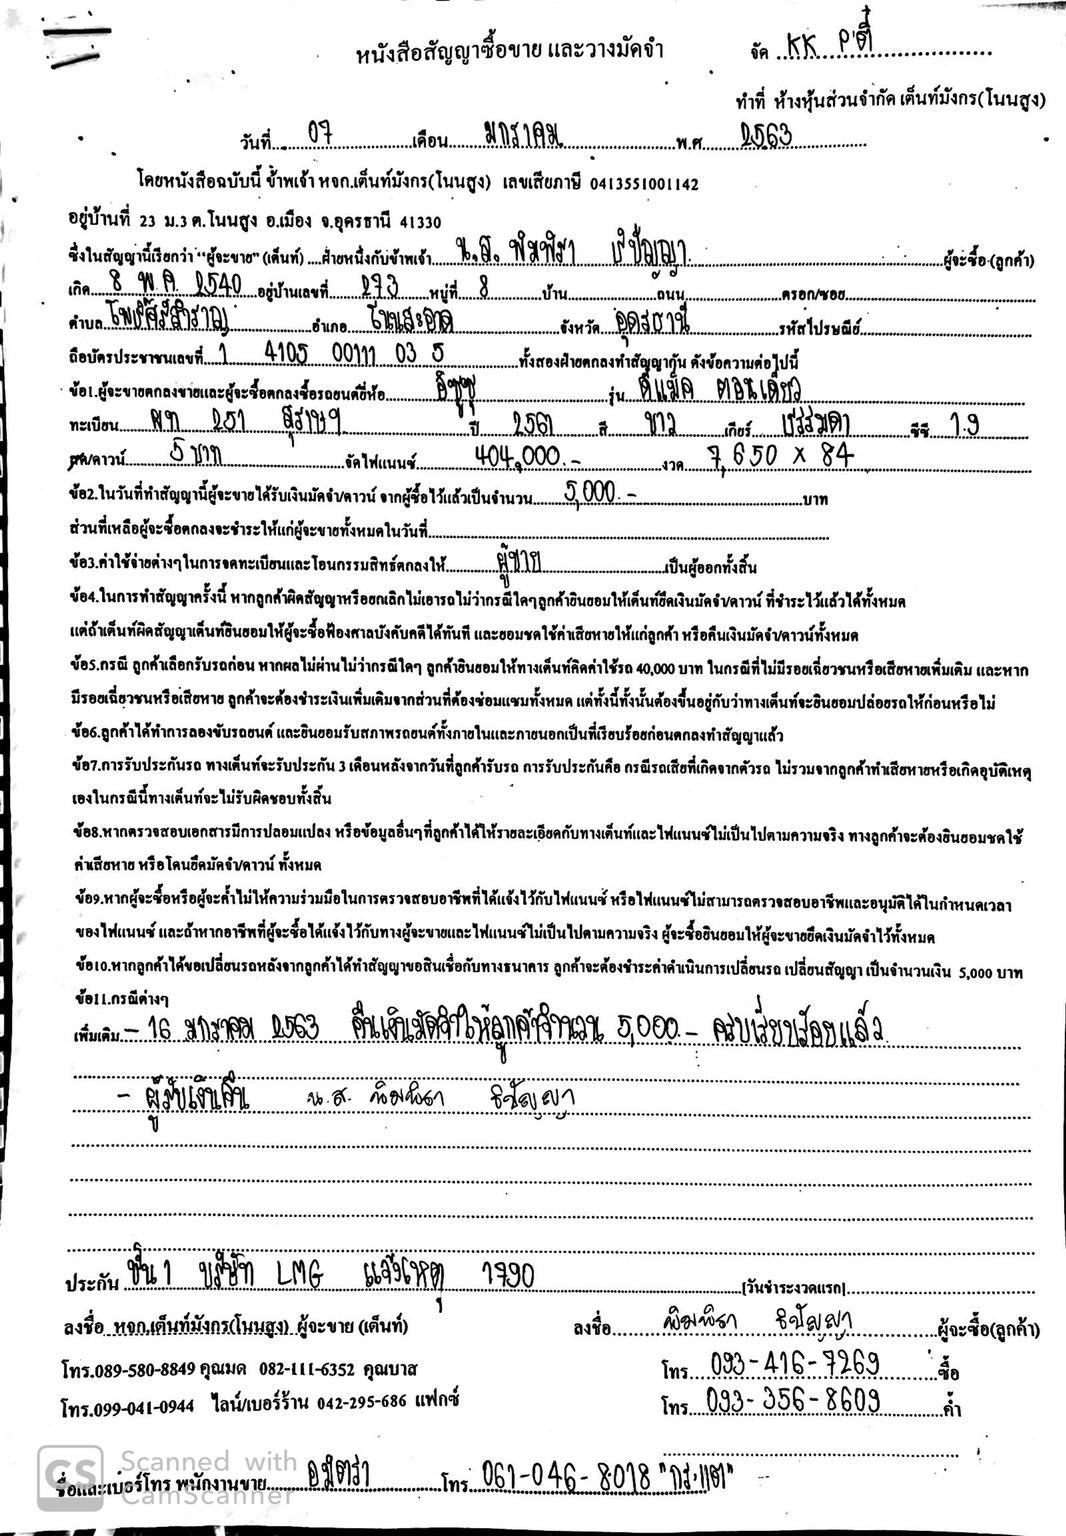 หนังสือสัญญาซื้อขาย และวางมัดจำ
จัด KK P'ตี๋
ทำที่ ห้างหุ้นส่วนจำกัด เต็นท์มังกร(โนนสูง)
วันที่ 07 เดือน มกราคม พ.ศ. 2563
โดยหนังสือฉบับนี้ ข้าพเจ้า หจก.เต็นท์มังกร(โนนสูง) เลขเสียภาษี 0413551001142
อยู่บ้านที่ 23 ม.3 ต.โนนสูง อ.เมือง จ.อุดรธานี 41330
ซึ่งในสัญญานี้เรียกว่า "ผู้จะขาย" (เต็นท์) ....ฝ่ายหนึ่งกับข้าพเจ้า น.ส. พิมพิรา ธิปัญญา ผู้จะซื้อ (ลูกค้า)
เกิด 8 พ.ค. 2540 อยู่บ้านเลขที่ 273 หมู่ที่ 8 บ้าน ถนน ตรอก/ซอย
ตำบล โพธิ์ศรีสำราญ อำเภอ โนนสะอาด จังหวัด อุดรธานี รหัสไปรษณีย์
ถือบัตรประชาชนเลขที่ 1 4105 00111 03 5 ทั้งสองฝ่ายตกลงทำสัญญากัน ดังข้อความต่อไปนี้
ข้อ1.ผู้จะขายตกลงขายและผู้จะซื้อตกลงซื้อรถยนต์ยี่ห้อ อีซูซุ รุ่น ดีแม็ค ตอนเดียว
ทะเบียน ผท 251 สุราษฯ ปี 2561 สี ขาว เกียร์ ธรรมดา ซีซี 1.9
สด/ดาวน์ 5 บาท จัดไฟแนนซ์ 404,000.- งวด 7,650 x 84
ข้อ2.ในวันที่ทำสัญญานี้ผู้จะขายได้รับเงินมัดจำ/ดาวน์ จากผู้ซื้อไว้แล้วเป็นจำนวน 5,000.- บาท
ส่วนที่เหลือผู้จะซื้อตกลงจะชำระให้แก่ผู้จะขายทั้งหมดในวันที่
ข้อ3.ค่าใช้จ่ายต่างๆในการจดทะเบียนและโอนกรรมสิทธ์ตกลงให้ ผู้ขาย เป็นผู้ออกทั้งสิ้น
ข้อ4.ในการทำสัญญาครั้งนี้ หากลูกค้าผิดสัญญาหรือยกเลิกไม่เอารถไม่ว่ากรณีใดๆลูกค้ายินยอมให้เต็นท์ยึดเงินมัดจำ/ดาวน์ ที่ชำระไว้แล้วได้ทั้งหมด
แต่ถ้าเต็นท์ผิดสัญญาเต็นท์ยินยอมให้ผู้จะซื้อฟ้องศาลบังคับคดีได้ทันที และยอมชดใช้ค่าเสียหายให้แก่ลูกค้า หรือคืนเงินมัดจำ/ดาวน์ทั้งหมด
ข้อ5.กรณี ลูกค้าเลือกรับรถก่อน หากผลไม่ผ่านไม่ว่ากรณีใดๆ ลูกค้ายินยอมให้ทางเต็นท์คิดค่าใช้รถ 40,000 บาท ในกรณีที่ไม่มีรอยเฉี่ยวชนหรือเสียหายเพิ่มเติม และหาก
มีรอยเฉี่ยวชนหรือเสียหาย ลูกค้าจะต้องชำระเงินเพิ่มเติมจากส่วนที่ต้องซ่อมแซมทั้งหมด แต่ทั้งนี้ทั้งนั้นต้องขึ้นอยู่กับว่าทางเต็นท์จะยินยอมปล่อยรถให้ก่อนหรือไม่
ข้อ6.ลูกค้าได้ทำการลองขับรถยนต์ และยินยอมรับสภาพรถยนต์ทั้งภายในและภายนอกเป็นที่เรียบร้อยก่อนตกลงทำสัญญาแล้ว
ข้อ7.การรับประกันรถ ทางเต็นท์จะรับประกัน 3 เดือนหลังจากวันที่ลูกค้ารับรถ การรับประกันคือ กรณีรถเสียที่เกิดจากตัวรถ ไม่รวมจากลูกค้าทำเสียหายหรือเกิดอุบัติเหตุ
เองในกรณีนี้ทางเต็นท์จะไม่รับผิดชอบทั้งสิ้น
ข้อ8.หากตรวจสอบเอกสารมีการปลอมแปลง หรือข้อมูลอื่นๆที่ลูกค้าได้ให้รายละเอียดกับทางเต็นท์และไฟแนนซ์ไม่เป็นไปตามความจริง ทางลูกค้าจะต้องยินยอมชดใช้
ค่าเสียหาย หรือโดนยึดมัดจำ/ดาวน์ ทั้งหมด
ข้อ9.หากผู้จะซื้อหรือผู้จะค้ำไม่ให้ความร่วมมือในการตรวจสอบอาชีพที่ได้แจ้งไว้กับไฟแนนซ์ หรือไฟแนนซ์ไม่สามารถตรวจสอบอาชีพและอนุมัติได้ในกำหนดเวลา
ของไฟแนนซ์ และถ้าหากอาชีพที่ผู้จะซื้อได้แจ้งไว้กับทางผู้จะขายและไฟแนนซ์ไม่เป็นไปตามความจริง ผู้จะซื้อยินยอมให้ผู้จะขายยึดเงินมัดจำไว้ทั้งหมด
ข้อ10.หากลูกค้าได้ขอเปลี่ยนรถหลังจากลูกค้าได้ทำสัญญาขอสินเชื่อกับทางธนาคาร ลูกค้าจะต้องชำระค่าดำเนินการเปลี่ยนรถ เปลี่ยนสัญญา เป็นจำนวนเงิน 5,000 บาท
ข้อ11.กรณีต่างๆ
เพิ่มเติม - 16 มกราคม 2563 คืนเงินมัดจำให้ลูกค้าจำนวน 5,000.- ครบเรียบร้อยแล้ว
- ผู้รับเงินคืน น.ส. พิมพิรา ธิปัญญา
ประกัน ชั้น 1 บริษัท LMG แจ้งเหตุ 1790 [วันชำระงวดแรก]
ลงชื่อ หจก.เต็นท์มังกร(โนนสูง) ผู้จะขาย (เต็นท์) ลงชื่อ พิมพิรา ธิปัญญา ผู้จะซื้อ(ลูกค้า)
โทร.089-580-8849 คุณมด 082-111-6352 คุณบาส โทร 093-416-7269 ซื้อ
โทร.099-041-0944 ไลน์/เบอร์ร้าน 042-295-686 แฟกซ์ โทร 093-356-8609 ค้ำ
CS Scanned with CamScanner
ชื่อและเบอร์โทร พนักงานขาย อมิตรา โทร 061-046-8018 "กระแต"